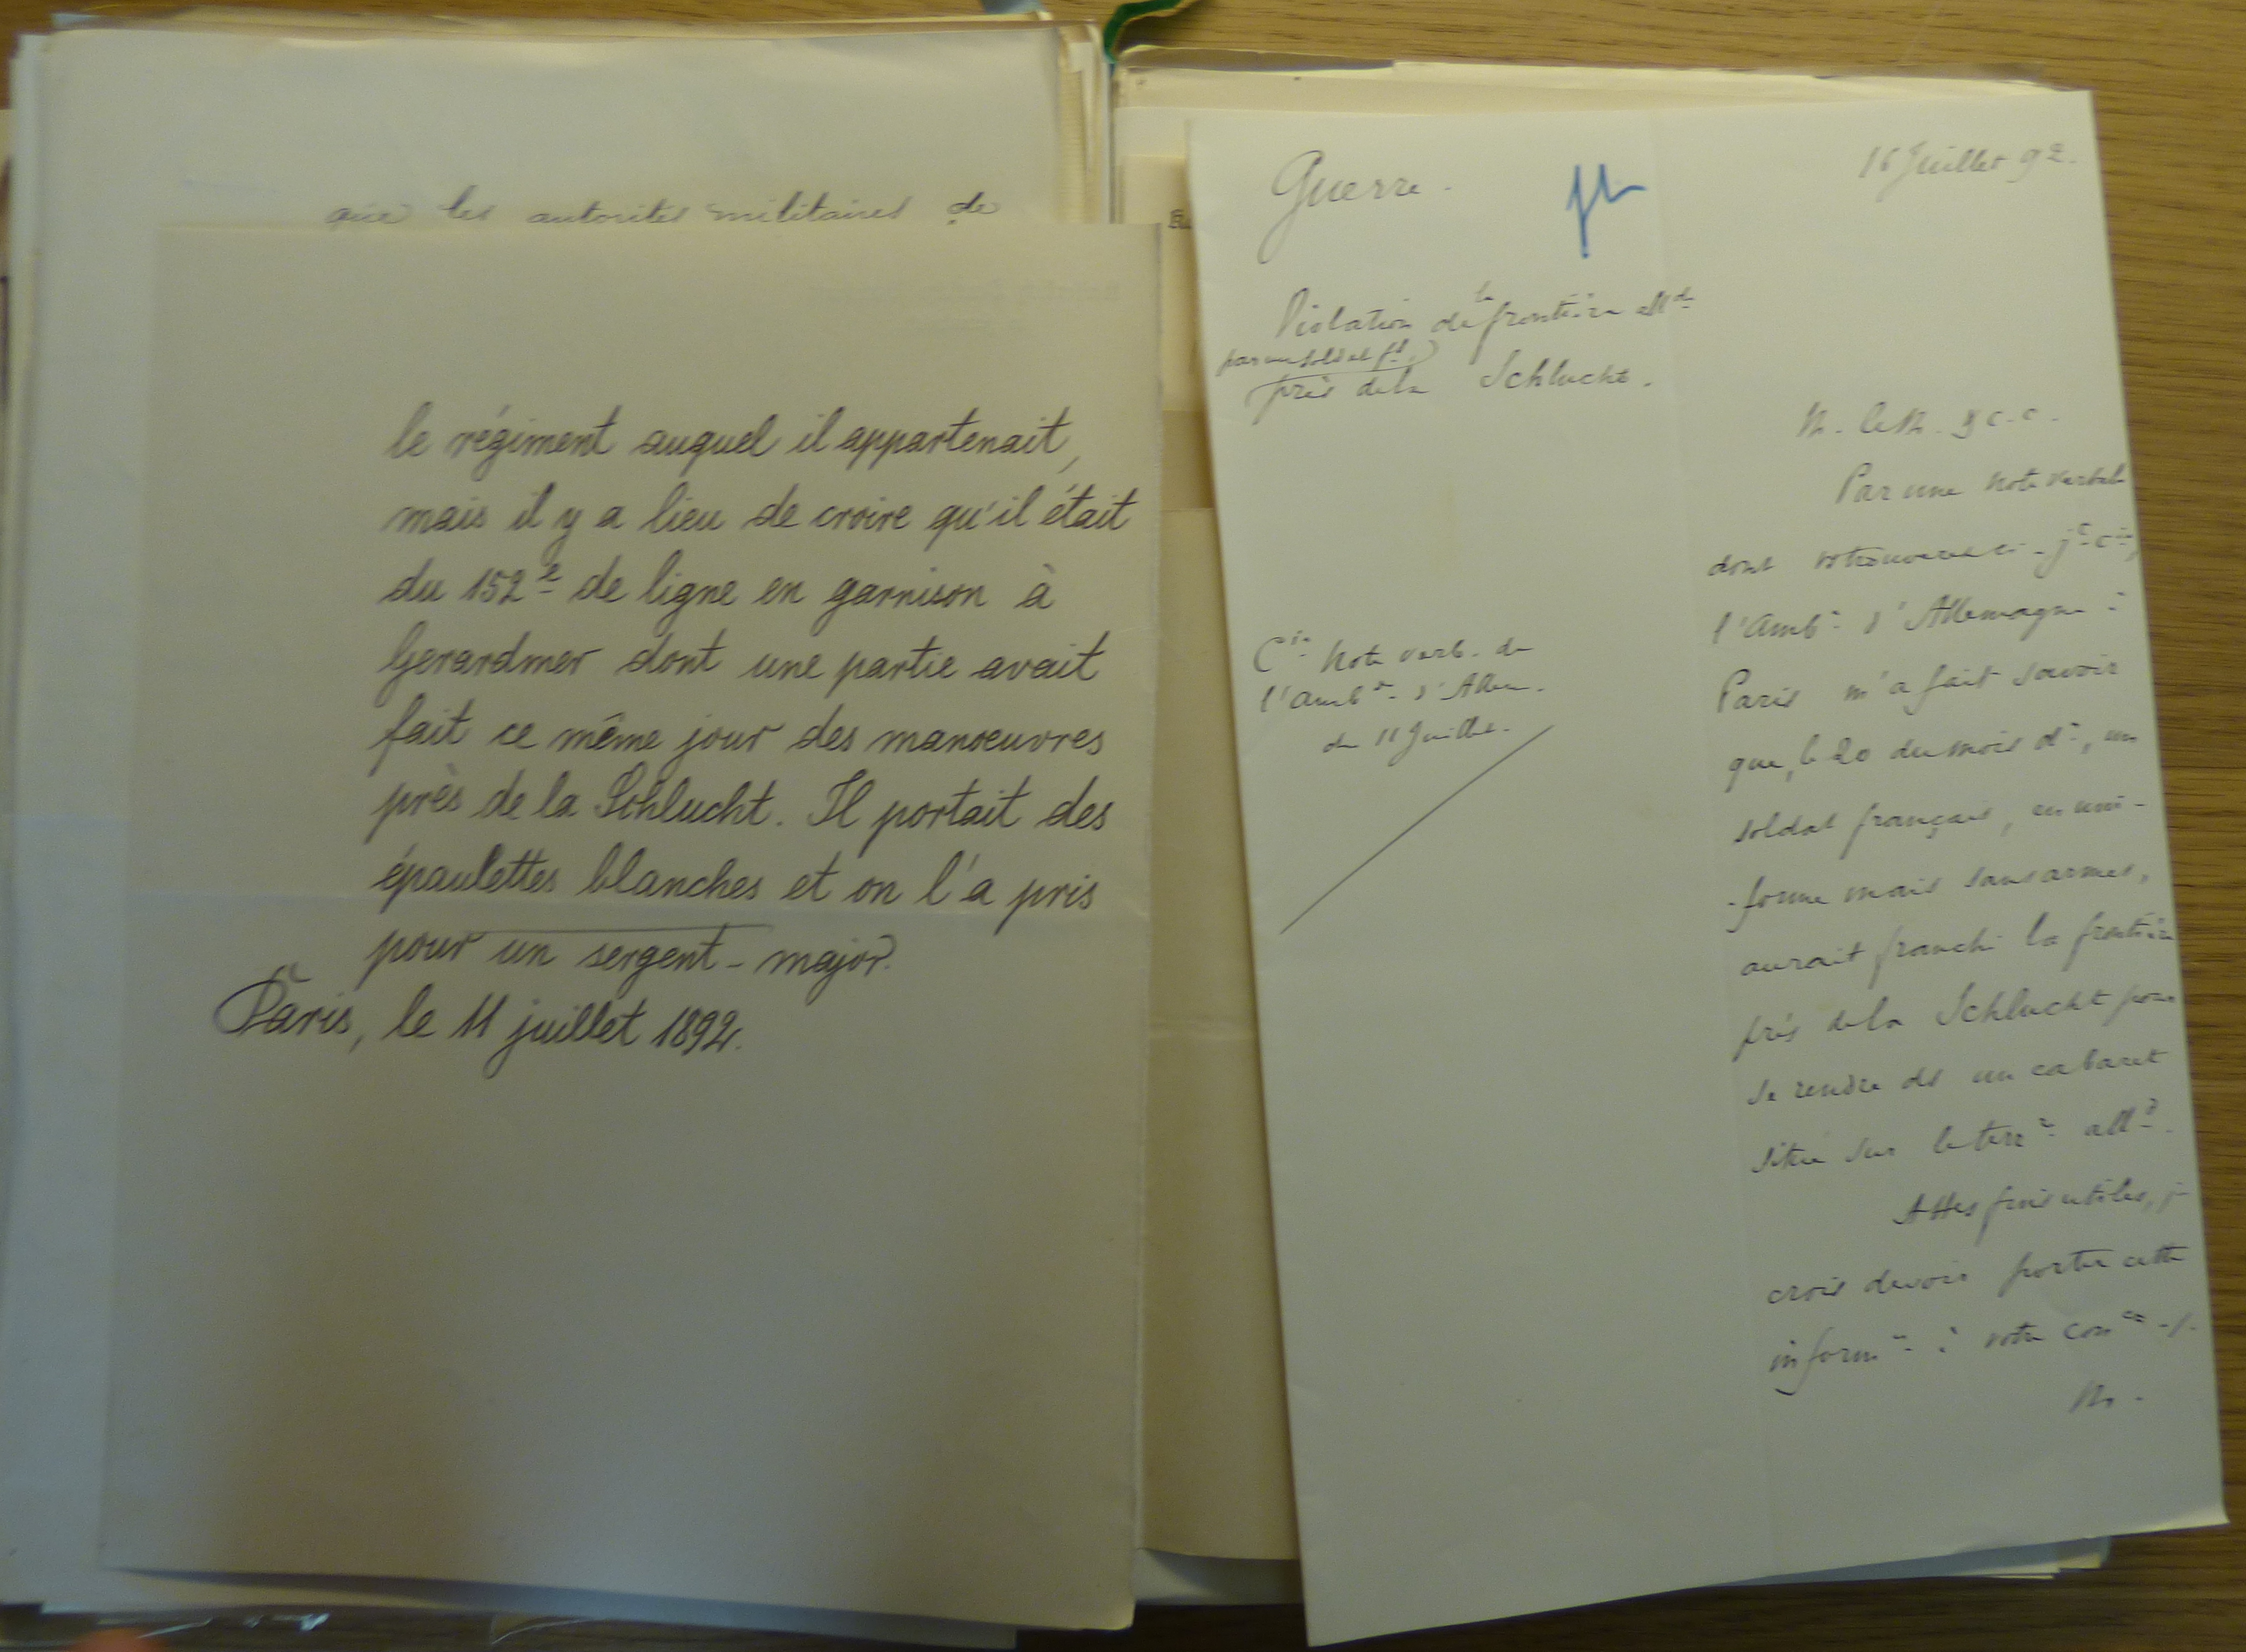 que les autorités militaires de
le régiment auquel il appartenait,
mais il y a lieu de croire qu'il était
du 152e de ligne en garnison à
Gerardmer dont une partie avait
fait ce même jour des manoeuvres
près de la Schlucht. Il portait des
épaulettes blanches et on l'a pris
pour un sergent-major.
Paris, le 11 juillet 1892.
Guerre.
16 Juillet 92.
Violation de la frontière allde
par un soldat fs
près de la Schlucht.
Cie Note verb. de
l'Ambde d'Allem.
du 11 Juillet.
M. le M. & c. c.
Par une note verbale
dont vs trouverez ci-jte cie,
l'Ambr d'Allemagne à
Paris m'a fait savoir
que, le 20 du mois dr, un
soldat français, en uni-
-forme mais sans armes,
aurait franchi la frontière
près de la Schlucht pour
se rendre ds un cabaret
situé sur le terre alld.
A ttes fins utiles, je
crois devoir porter cette
inform on à votre conce ./.
M.